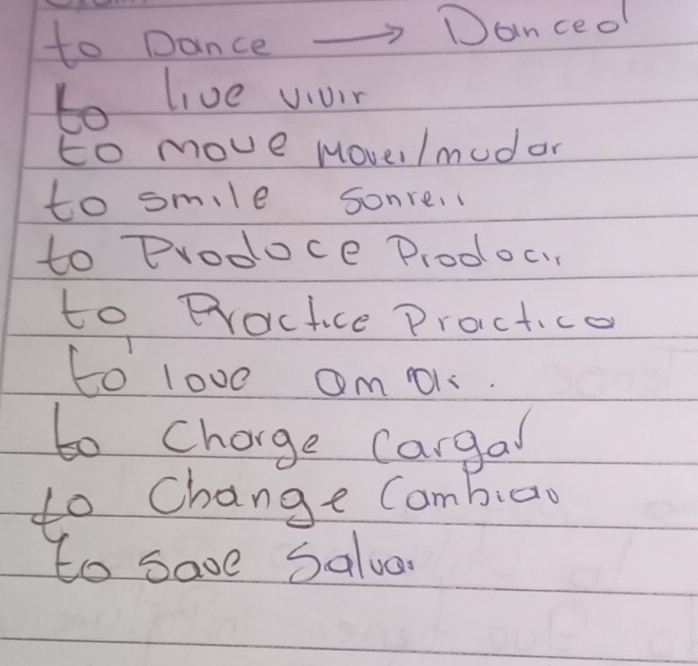 to Dance → Danced
to live vivir
to move mover/mudar
to smile sonreir
to Produce Producir
to Practice Practica
to love amar.
to Charge Cargar
to Change Cambiar
to save Salvar